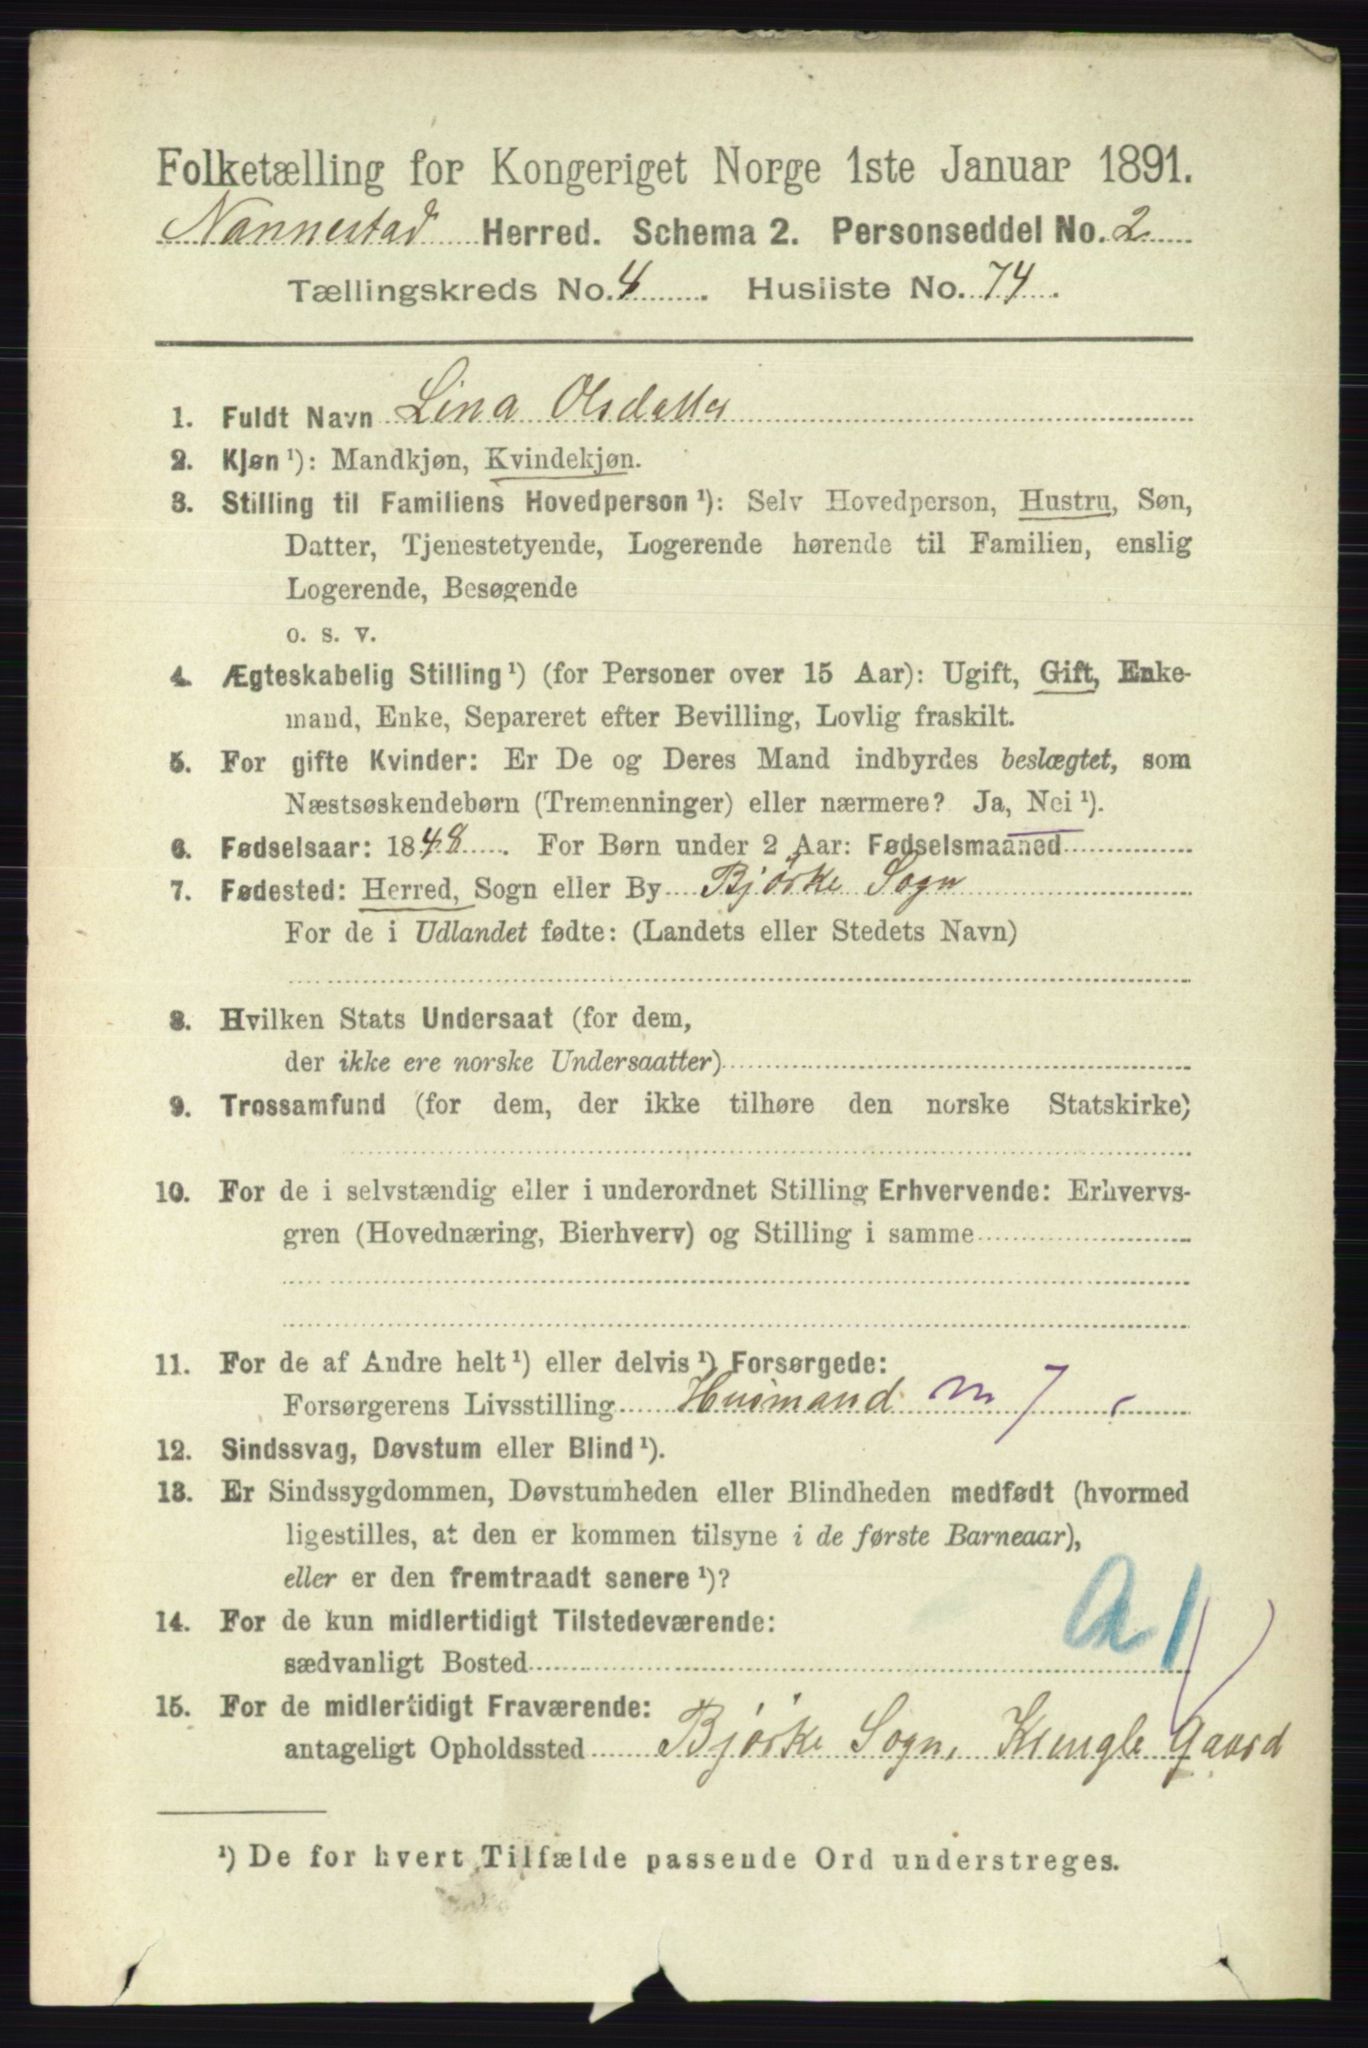 Folketælling for Kongeriget Norge 1ste Januar 1891.
Nannestad Herred. Schema 2. Personseddel No. 2
Tællingskreds No. 4. Husliste No. 74.
1. Fuldt Navn Lina Olsdatter
2. Kjøn ¹): Mandkjøn, Kvindekjøn.
3. Stilling til Familiens Hovedperson ¹): Selv Hovedperson, Hustru, Søn,
Datter, Tjenestetyende, Logerende hørende til Familien, enslig
Logerende, Besøgende
o. s. v.
4. Ægteskabelig Stilling ¹) (for Personer over 15 Aar): Ugift, Gift, Enke-
mand, Enke, Separeret efter Bevilling, Lovlig fraskilt.
5. For gifte Kvinder: Er De og Deres Mand indbyrdes beslægtet, som
Næstsøskendebørn (Tremenninger) eller nærmere? Ja, Nei ¹).
6. Fødselsaar: 1848. For Børn under 2 Aar: Fødselsmaaned
7. Fødested: Herred, Sogn eller By Bjørke Sogn
For de i Udlandet fødte: (Landets eller Stedets Navn)
8. Hvilken Stats Undersaat (for dem,
der ikke ere norske Undersaatter)
9. Trossamfund (for dem, der ikke tilhøre den norske Statskirke)
10. For de i selvstændig eller i underordnet Stilling Erhvervende: Erhvervs-
gren (Hovednæring, Bierhverv) og Stilling i samme
11. For de af Andre helt ¹) eller delvis ¹) Forsørgede:
Forsørgerens Livsstilling Husmand m 7
12. Sindssvag, Døvstum eller Blind ¹).
13. Er Sindssygdommen, Døvstumheden eller Blindheden medfødt (hvormed
ligestilles, at den er kommen tilsyne i de første Barneaar),
eller er den fremtraadt senere ¹)?
14. For de kun midlertidigt Tilstedeværende:
sædvanligt Bosted
a 1
15. For de midlertidigt Fraværende:
antageligt Opholdssted Bjørke Sogn, Gaard
¹) De for hvert Tilfælde passende Ord understreges.